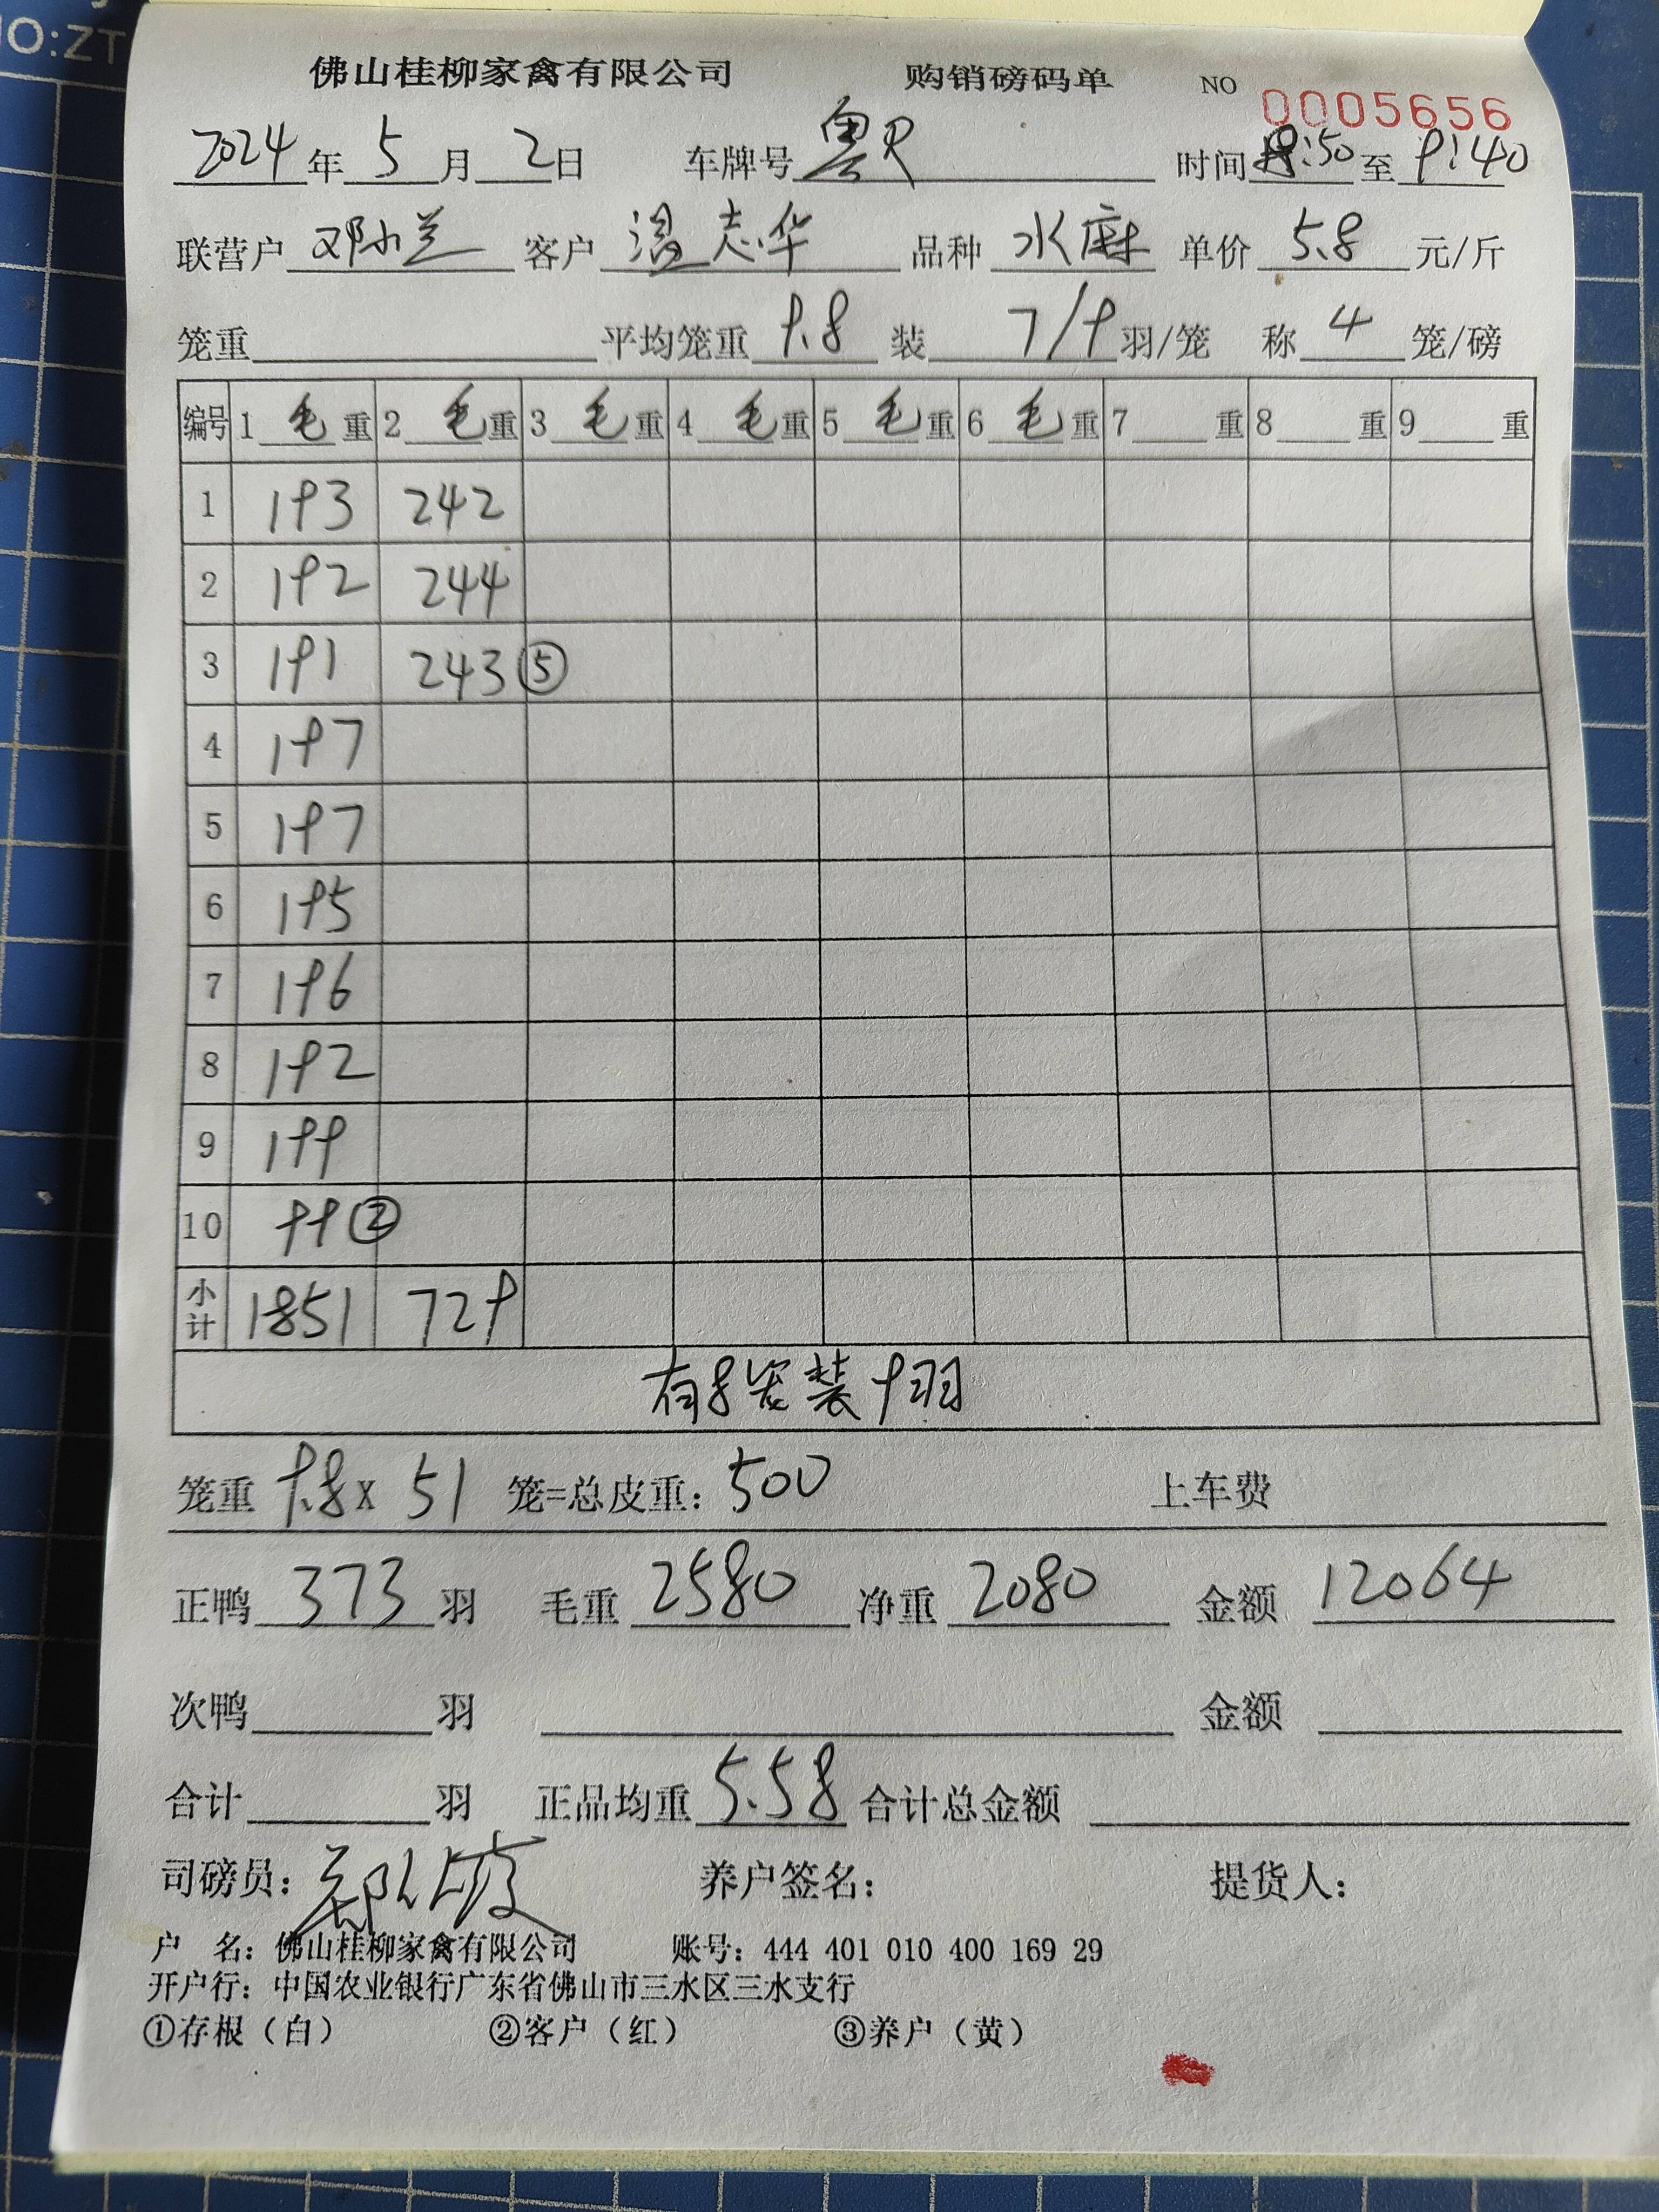 O:ZT
佛山桂柳家禽有限公司 购销磅码单 NO 0005656
2024年5月2日 车牌号粤R 时间8:50至9:40
联营户邓小兰 客户温志华 品种水麻 单价5.8元/斤
笼重 平均笼重9.8装7/9羽/笼 称4笼/磅
编号 1毛重 2毛重 3毛重 4毛重 5毛重 6毛重 7重 8重 9重
1 193 242
2 192 244
3 191 243⑤
4 197
5 197
6 195
7 196
8 192
9 199
10 99②
小计 1851 729
有8笼装9羽
笼重9.8x51笼=总皮重:500 上车费
正鸭373羽 毛重2580净重2080 金额12064
次鸭 羽 金额
合计 羽 正品均重5.58合计总金额
司磅员: 养户签名: 提货人:
户 名:佛山桂柳家禽有限公司 账号:444 401 010 400 169 29
开户行:中国农业银行广东省佛山市三水区三水支行
①存根(白) ②客户(红) ③养户(黄)